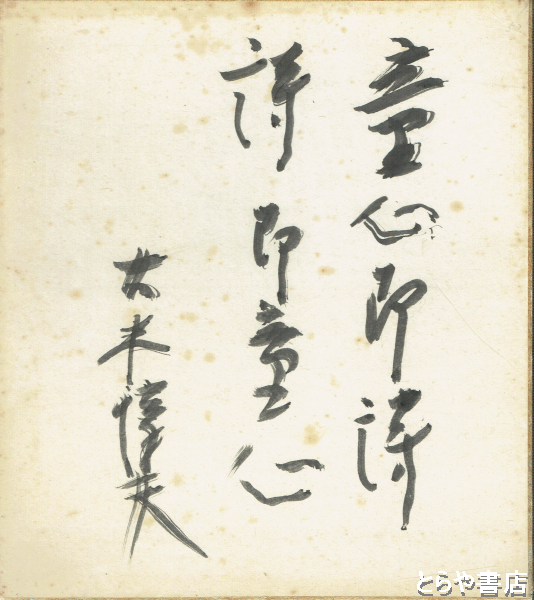 童心即詩
詩即童心
大木惇夫
とらや書店